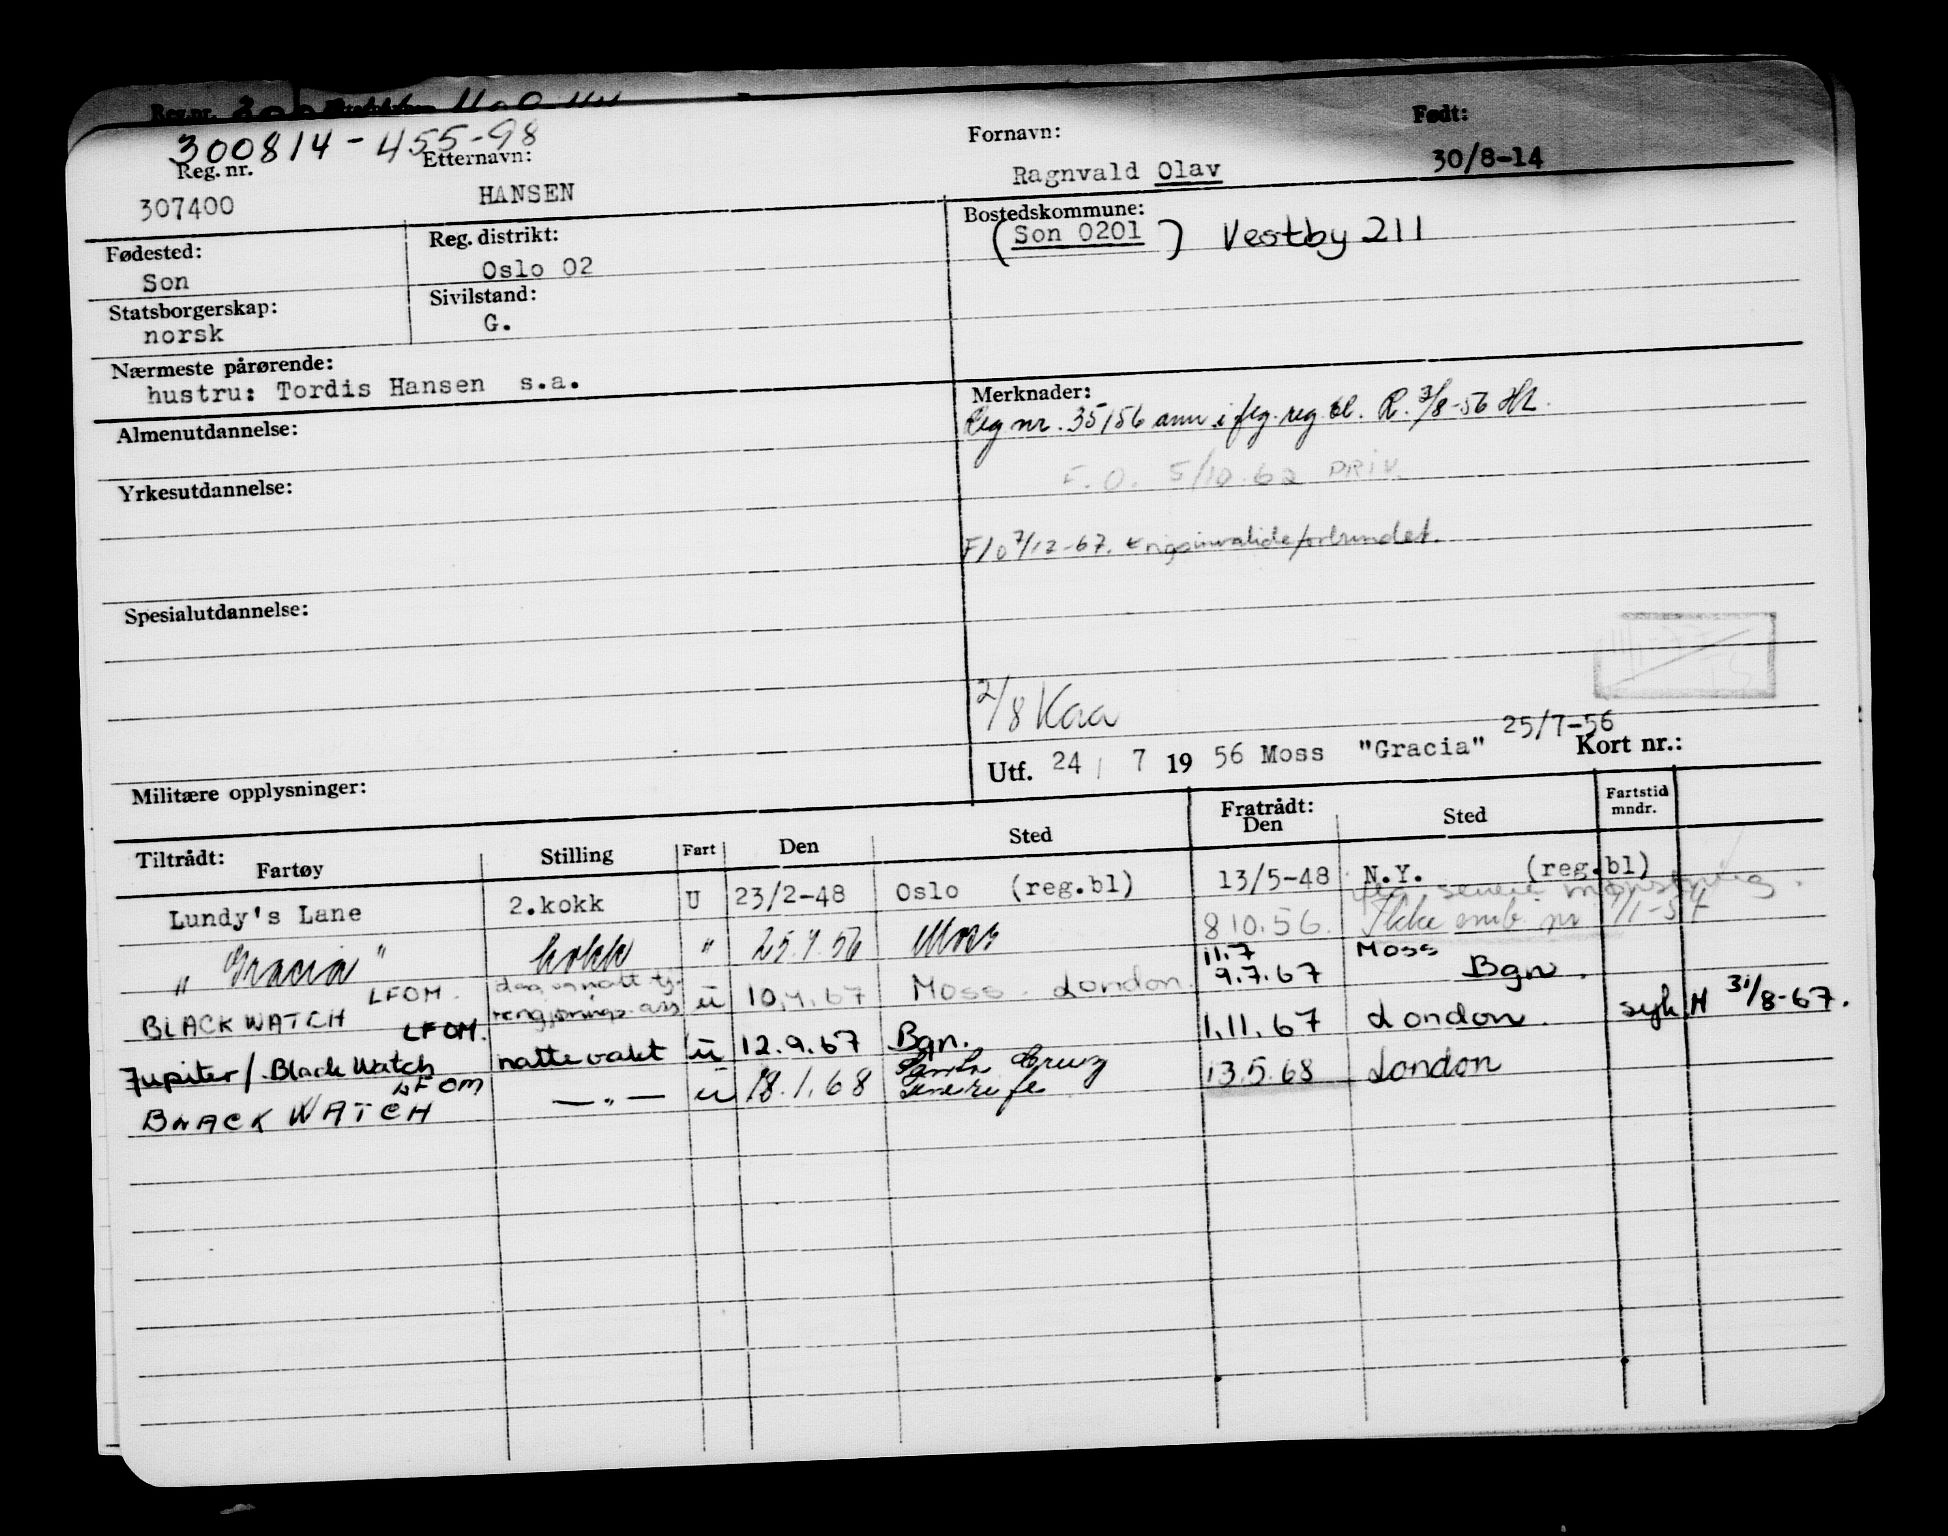 300814-455-98
Reg. nr. Etternavn: Fornavn: Født:
307400 HANSEN Ragnvald Olav 30/8-14
Fødested: Reg. distrikt: Bostedskommune:
Son Oslo 02 (Son 0201) Vestby 211
Statsborgerskap: Sivilstand:
norsk G.
Nærmeste pårørende:
hustru: Tordis Hansen s.a.
Merknader:
Reg nr. 35156 ann. i reg. bl. R. 3/8-56
Almenutdannelse:
F.O. 5/10.62 PRIV.
Yrkesutdannelse:
F/o 7/12-67. Krigsinvalideforbundet.
Spesialutdannelse:
2/8 Kaa
Utf. 24 / 7 19 56 Moss "Gracia" 25/7-56 Kort nr.:
Militære opplysninger:
Tiltrådt: Fratrådt:
Fartøy Stilling Fart Den Sted Den Sted Fartstid mndr.
Lundy's Lane 2.kokk U 23/2-48 Oslo (reg.bl) 13/5-48 N.Y. (reg.bl)
" Gracia " kokk " 25.7.56 Moss 8 10.56. Ikke
11.7 Moss
BLACK WATCH LFOM. ü 10.4.67 Moss - London 9.7.67 Bgn.
Jupiter/. Black Watch LFOM. nattevakt ü 12.9.67 Bgn. 1.11.67 London. syk H 31/8-67.
BLACK WATCH LFOM — " — ü 18.1.68 Santa Cruz Tenerife 13.5.68 London